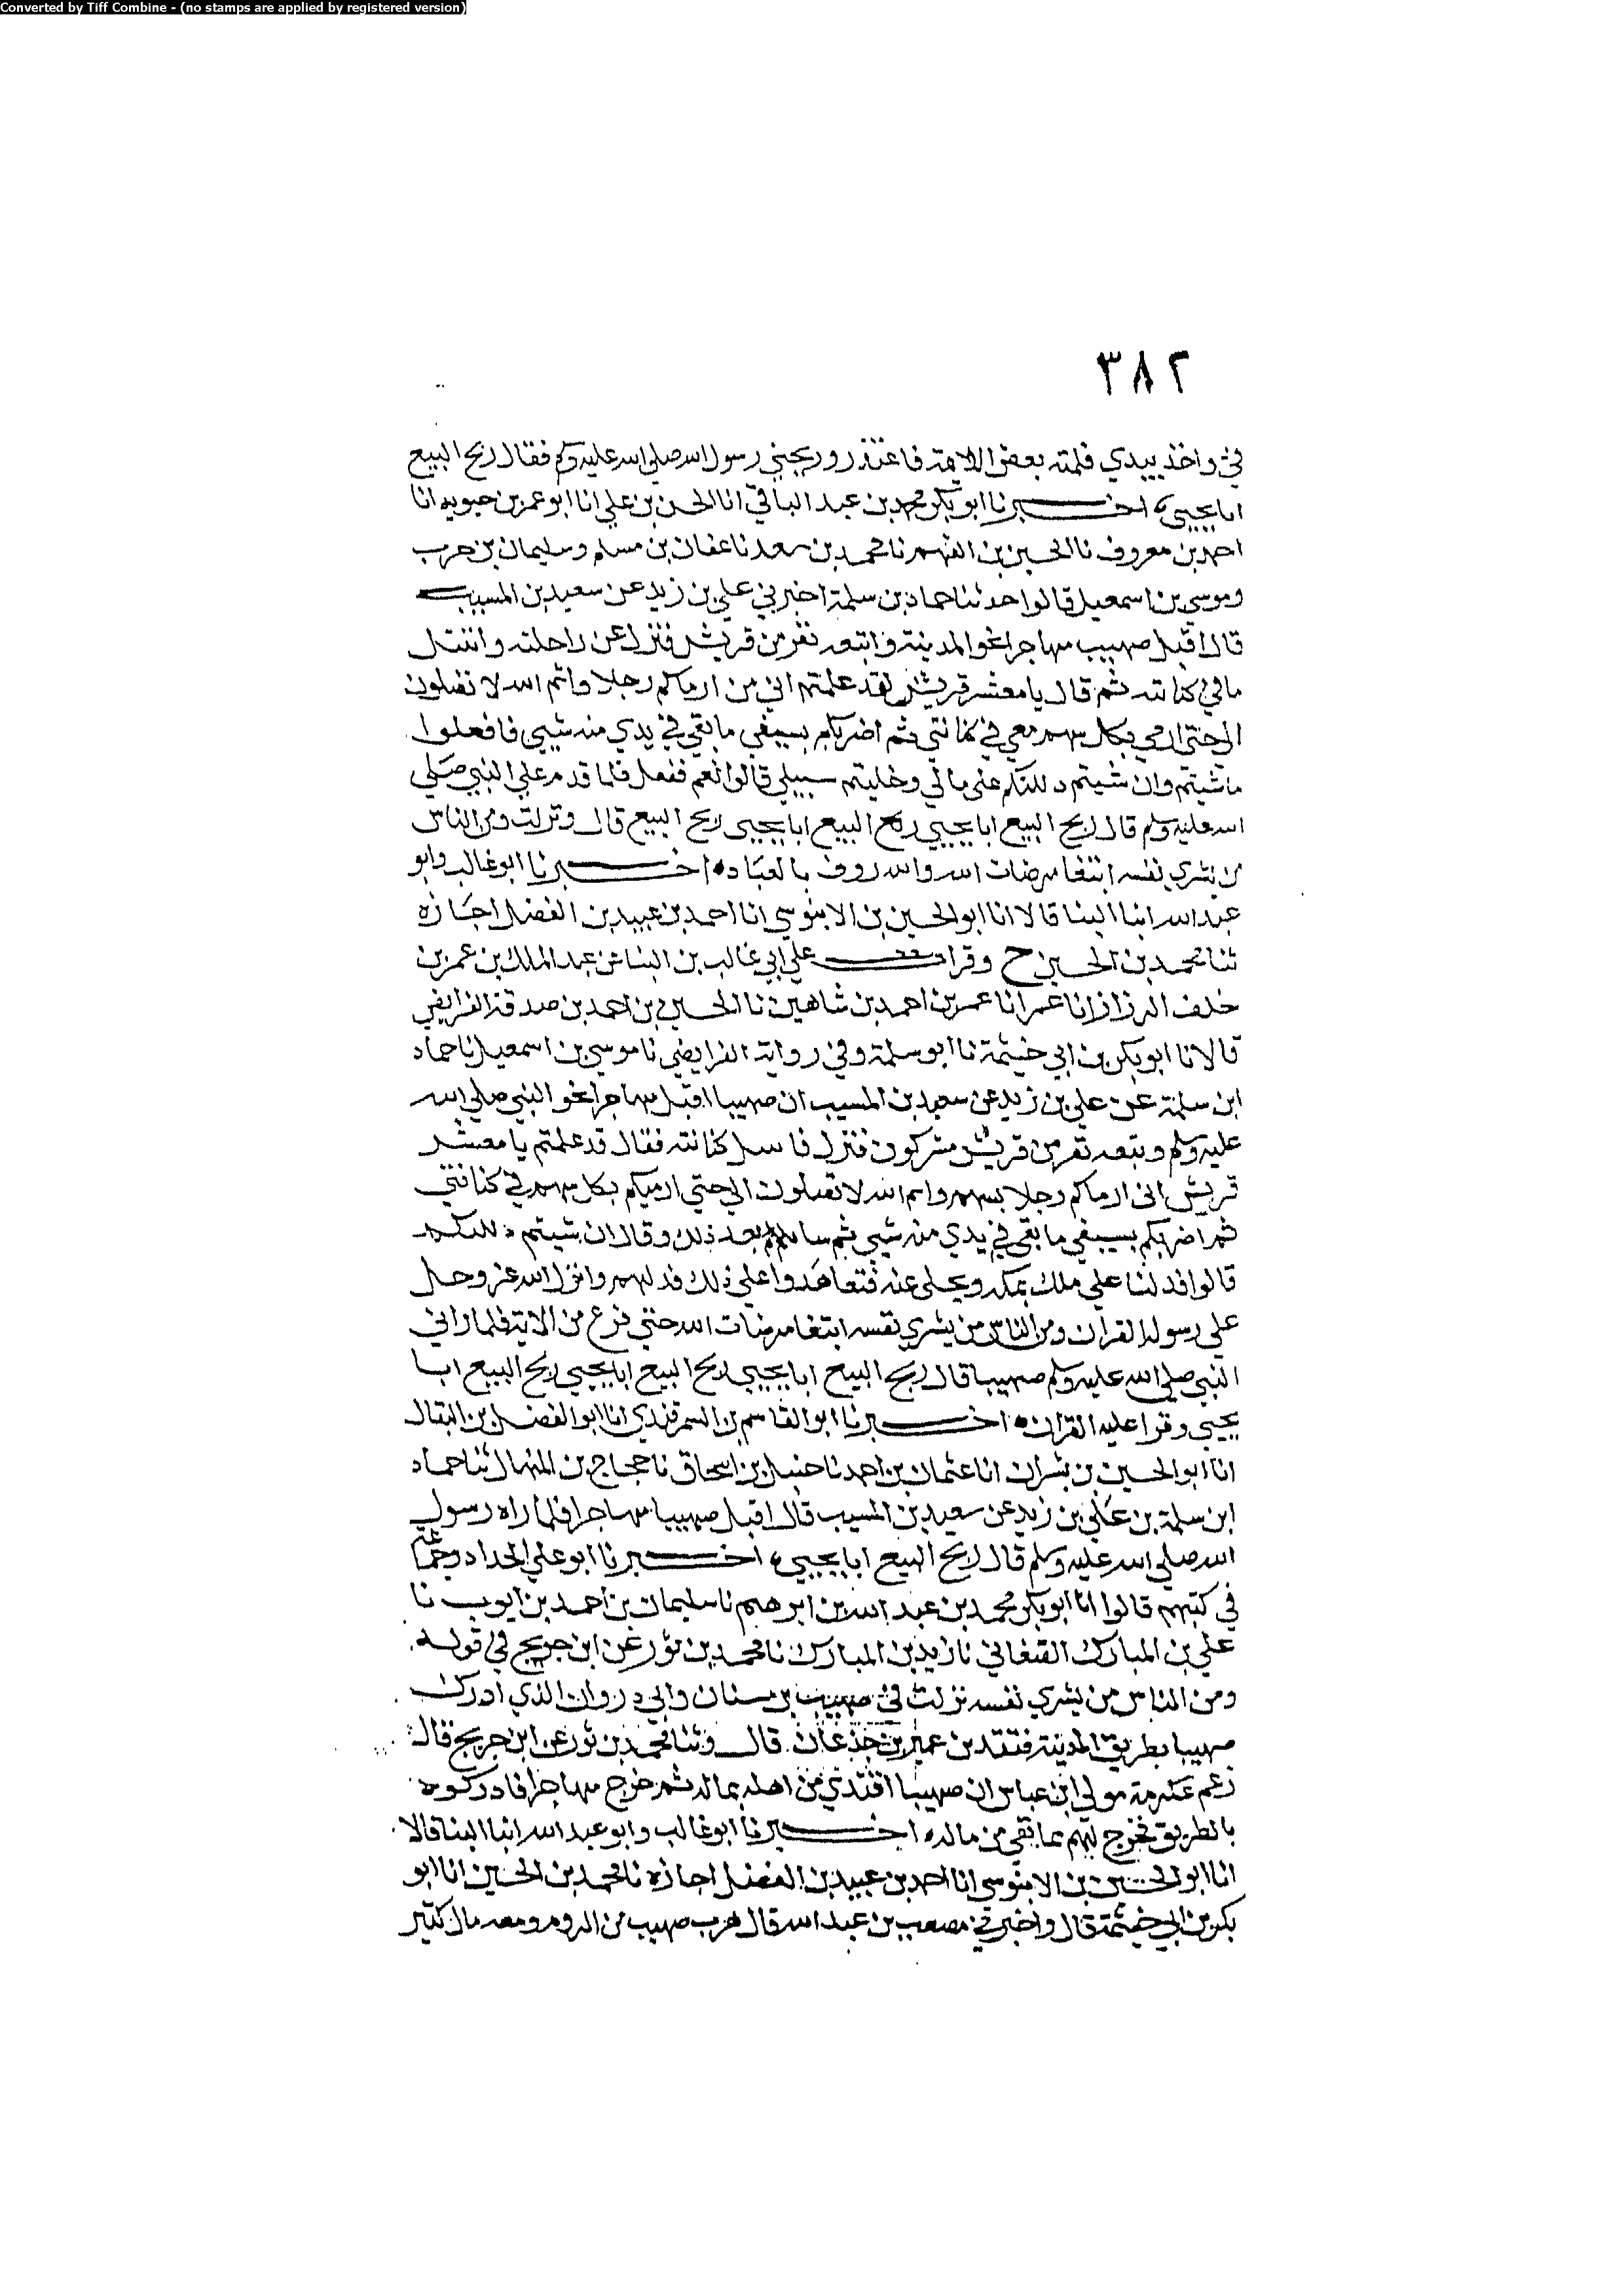 Converted by Tiff Combine - (no stamps are applied by registered version)
٣٨٢
في واخذ بيدي فلمته بعض اللامة فاعتذر وربحني رسول الله صلى الله عليه وسلم فقال ربح البيع
ابا يحيى اخبرنا ابو بكر محمد بن عبد الباقي انا الحسن بن علي انا ابو عمر بن حيويه انا
احمد بن معروف نا الحسين بن الفهم نا محمد بن سعد نا عفان بن مسلم وسليمان بن حرب
وموسي بن اسمعيل قالوا حدثنا حماد بن سلمة اخبرني علي بن زيد عن سعيد بن المسيب
قال اقبل صهيب مهاجرا نحو المدينة واتبعه نفر من قريش فنزل عن راحلته وانتثل
ما في كنانته ثم قال يا معشر قريش لقد علمتم اني من ارماكم رجلا وايم الله لا تصلون
الي حتى ارمي بكل سهم معي في كنانتي ثم اضربكم بسيفي ما بقي في يدي منه شيي فافعلوا
ما شيتم وان شيتم دللتكم على مالي وخليتم سبيلي قالوا نعم ففعل فلما قدم علي النبي صلي
الله عليه وسلم قال ربح البيع ابا يحيي ربح البيع ابا يحيى ربح البيع قال ونزلت ومن الناس
من يشري نفسه ابتغا مرضات الله والله روف بالعباد اخبرنا ابو غالب وابو
عبد الله ابنا البنا قالا انا ابو الحسين بن الابنوسي انا احمد بن عبيد بن الفضل اجازه
ثنا محمد بن الحسين ح وقرات علي ابي غالب بن البنا عن عبد الملك بن عمر بن
خلف الرزاز انا عمر انا عمر بن احمد بن شاهين نا الحسين بن احمد بن صدقة الفرايضي
قالا نا ابو بكر بن ابي خيثمة نا ابو سلمة وفي رواية الفرايضي نا موسي بن اسمعيل نا حماد
ابن سلمة عن علي بن زيد عن سعيد بن المسيب ان صهيبا اقبل مهاجرا نحو النبي صلي الله
عليه وسلم وتبعه نفر من قريش مشركون فنزل فاسل كنانته فقال قد علمتم يا معشر
قريش اني ارماكم رجلا بسهم وايم الله لا تصلون الي حتى ارميكم بكل سهم في كنانتي
ثم اضربكم بسيفي ما بقى في يدي منه شيي ثم سالهم بعد ذلك وقال ان شيتم دللتكم
قالوا فدلنا علي ملك بمكه ويخلى عنه فتعاهدوا علي ذلك فدلهم وانزل الله عز وجل
على رسوله القران ومن الناس من يشري نفسه ابتغا مرضات الله حتى فرغ من الاية فلما راى
النبي صلي الله عليه وسلم صهيبا قال ربح البيع ابا يحيي ربح البيع ابا يحيي ربح البيع ابا
يحيي وقرا عليه القران اخبرنا ابو القاسم بن السمرقندي انا ابو الفضل بن البقال
انا ابو الحسين بن بشران انا عثمان بن احمد نا حنبل بن اسحاق نا حجاج بن المنهال ثنا حماد
ابن سلمة بن علي بن زيد عن سعيد بن المسيب قال اقبل صهيبا مهاجرا فلما راه رسول
الله صلي الله عليه وسلم قال ربح البيع ابا يحيي اخبرنا ابو علي الحداد وجماعة
في كتبهم قالوا انا ابو بكر محمد بن عبد الله بن ابرهيم نا سليمان بن احمد بن ايوب نا
علي بن المبارك نا زيد بن المبارك نا محمد بن ثور عن ابن جريج في قوله
ومن الناس من يشري نفسه نزلت في صهيب بن سنان وابي ذر وان الذي ادرك
صهيبا بطريق المدينة قنقد بن عمير بن جذعان قال وثنا محمد بن ثور عن ابن جريج قال
زعم عكرمة مولي ابن عباس ان صهيبا افتدي من اهله بماله ثم خرج مهاجرا فادركوه
بالطريق فخرج لهم مما بقي من ماله اخبرنا ابو غالب وابو عبد الله ابنا البنا قالا
انا ابو الحسين بن الابنوسي انا احمد بن عبيد بن الفضل اجازه نا محمد بن الحسين انا ابو
بكر بن ابي خيثمة قال واخبرني مصعب بن عبد الله قال هرب صهيب من الروم ومعه مال كثير